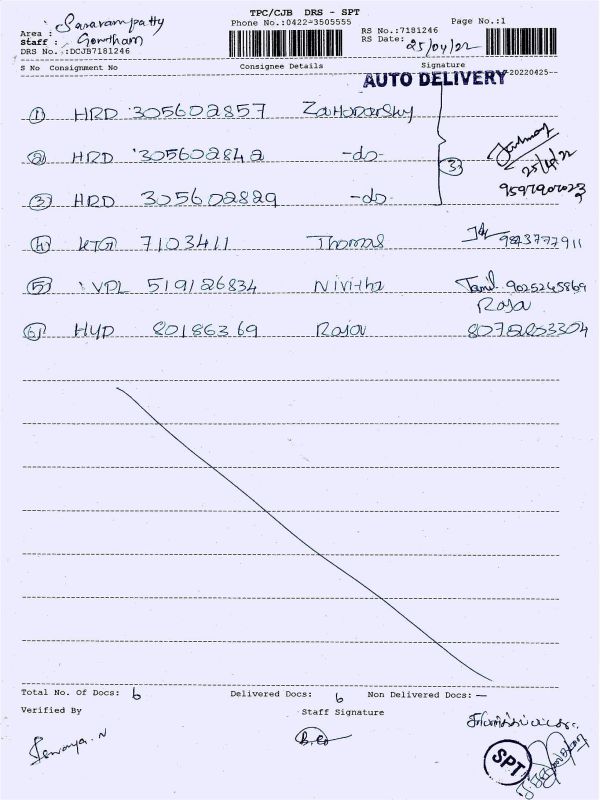 TPC/CJB DRS - SPT
Phone No.:0422-3505555
Page No.:1
Area : Saravarampatty
Staff : Gowtham
DRS No.:DCJB7181246
RS No.:7181246
RS Date: 25/04/22
S No Consignment No Consignee Details Signature
-20220425--
AUTO DELIVERY
1 HRD 305602857 Zahonarsky
2 HRD 305602842 -do-
3 HRD 305602829 -do-
3
25/4/22
9597907023
4 KTG 7103411 Thomas 9843777911
5 VPL 519126834 Nivitha Tamil 9025245869
Raja
6 HYD 80186369 Raja 8072853304
Total No. Of Docs: 6 Delivered Docs: 6 Non Delivered Docs: —
Verified By Staff Signature
SPT